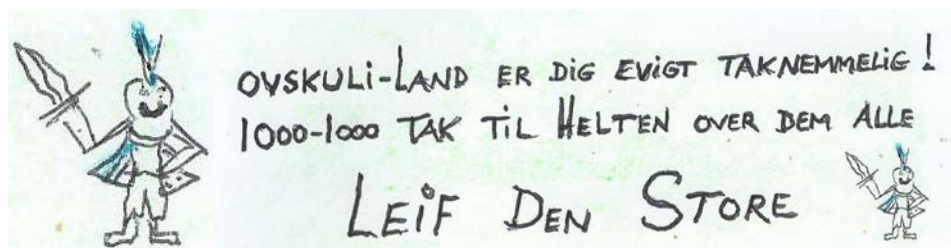 OVSKULI-LAND ER DIG EVIGT TAKNEMMELIG!
1000-1000 TAK TIL HELTEN OVER DEM ALLE
LEIF DEN STORE